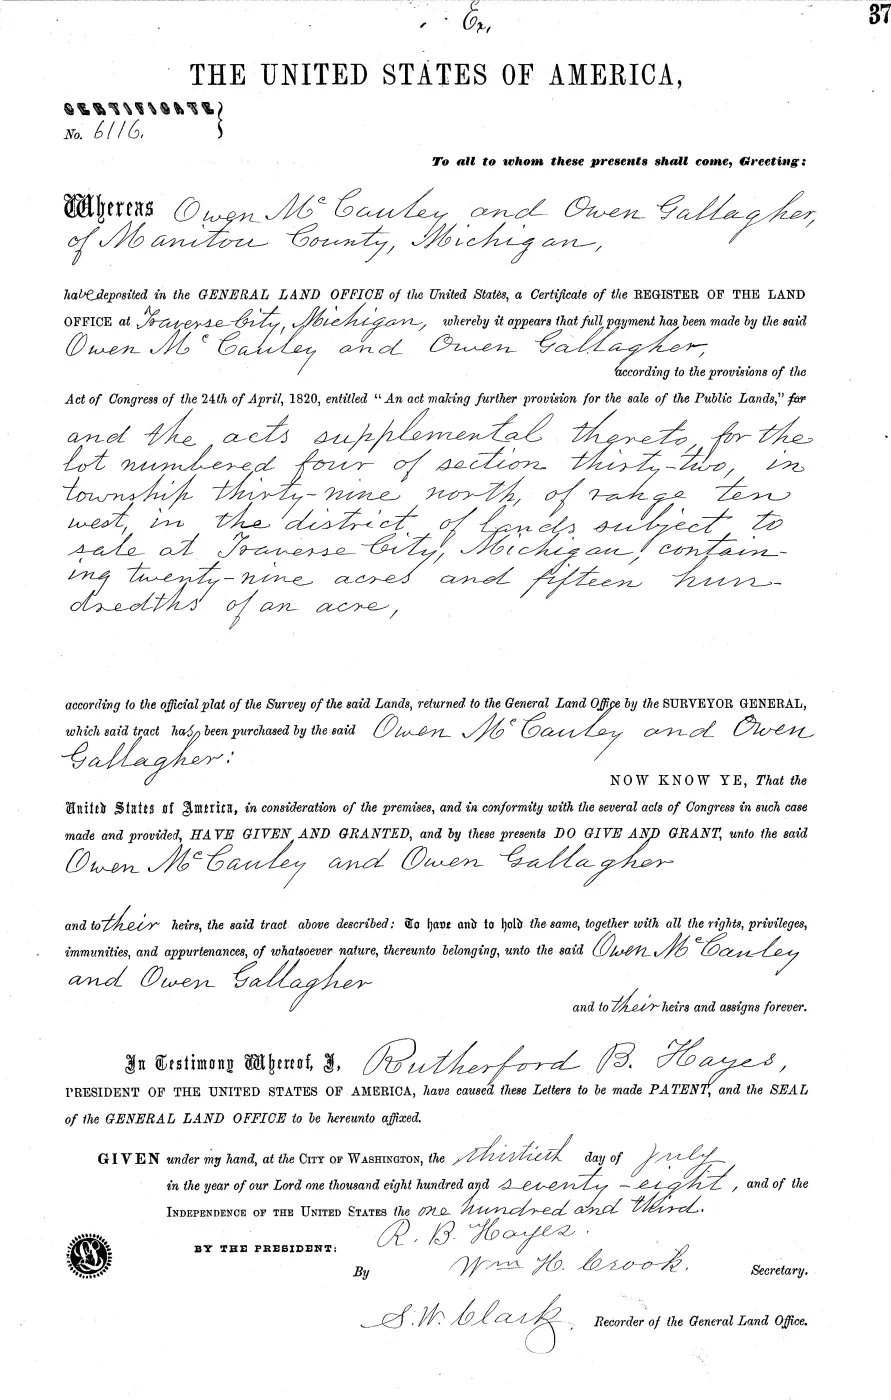 Ex,
37
THE UNITED STATES OF AMERICA,
CERTIFICATE
No. 6116.
To all to whom these presents shall come, Greeting:
Whereas Owen McCauley and Owen Gallagher,
of Manitou County, Michigan,
have deposited in the GENERAL LAND OFFICE of the United States, a Certificate of the REGISTER OF THE LAND
OFFICE at Traverse City, Michigan, whereby it appears that full payment has been made by the said
Owen McCauley and Owen Gallagher,
according to the provisions of the
Act of Congress of the 24th of April, 1820, entitled "An act making further provision for the sale of the Public Lands," for
and the acts supplemental thereto, for the
lot numbered four of section thirty-two, in
township thirty-nine north, of range ten
west, in the district of lands subject to
sale at Traverse City, Michigan, contain-
ing twenty-nine acres and fifteen hun-
dredths of an acre,
according to the official plat of the Survey of the said Lands, returned to the General Land Office by the SURVEYOR GENERAL,
which said tract has been purchased by the said Owen McCauley and Owen
Gallagher:
NOW KNOW YE, That the
United States of America, in consideration of the premises, and in conformity with the several acts of Congress in such case
made and provided, HAVE GIVEN AND GRANTED, and by these presents DO GIVE AND GRANT, unto the said
Owen McCauley and Owen Gallagher
and to their heirs, the said tract above described: To have and to hold the same, together with all the rights, privileges,
immunities, and appurtenances, of whatsoever nature, thereunto belonging, unto the said Owen McCauley
and Owen Gallagher
and to their heirs and assigns forever.
In Testimony Whereof, I, Rutherford B. Hayes,
PRESIDENT OF THE UNITED STATES OF AMERICA, have caused these Letters to be made PATENT, and the SEAL
of the GENERAL LAND OFFICE to be hereunto affixed.
GIVEN under my hand, at the CITY OF WASHINGTON, the thirtieth day of July
in the year of our Lord one thousand eight hundred and seventy-eight, and of the
INDEPENDENCE OF THE UNITED STATES the one hundred and third.
BY THE PRESIDENT: R. B. Hayes.
By Wm H. Crook. Secretary.
S. W. Clark, Recorder of the General Land Office.